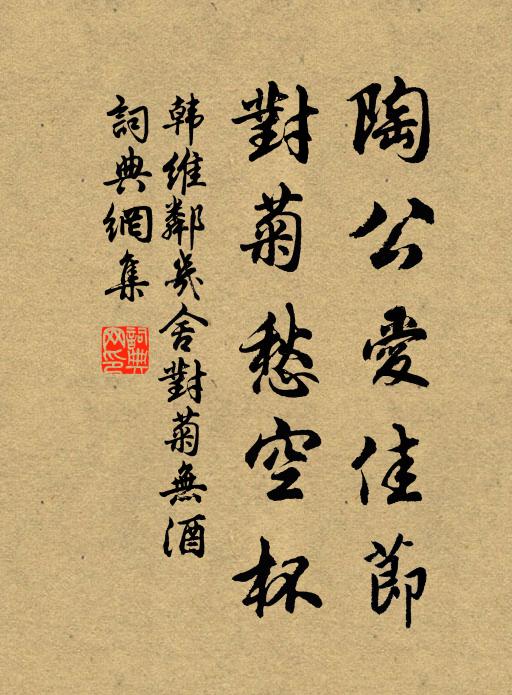 陶公愛佳節
對菊愁空杯
韩維鄰幾舍對菊無酒
詞典網集
詞典网印